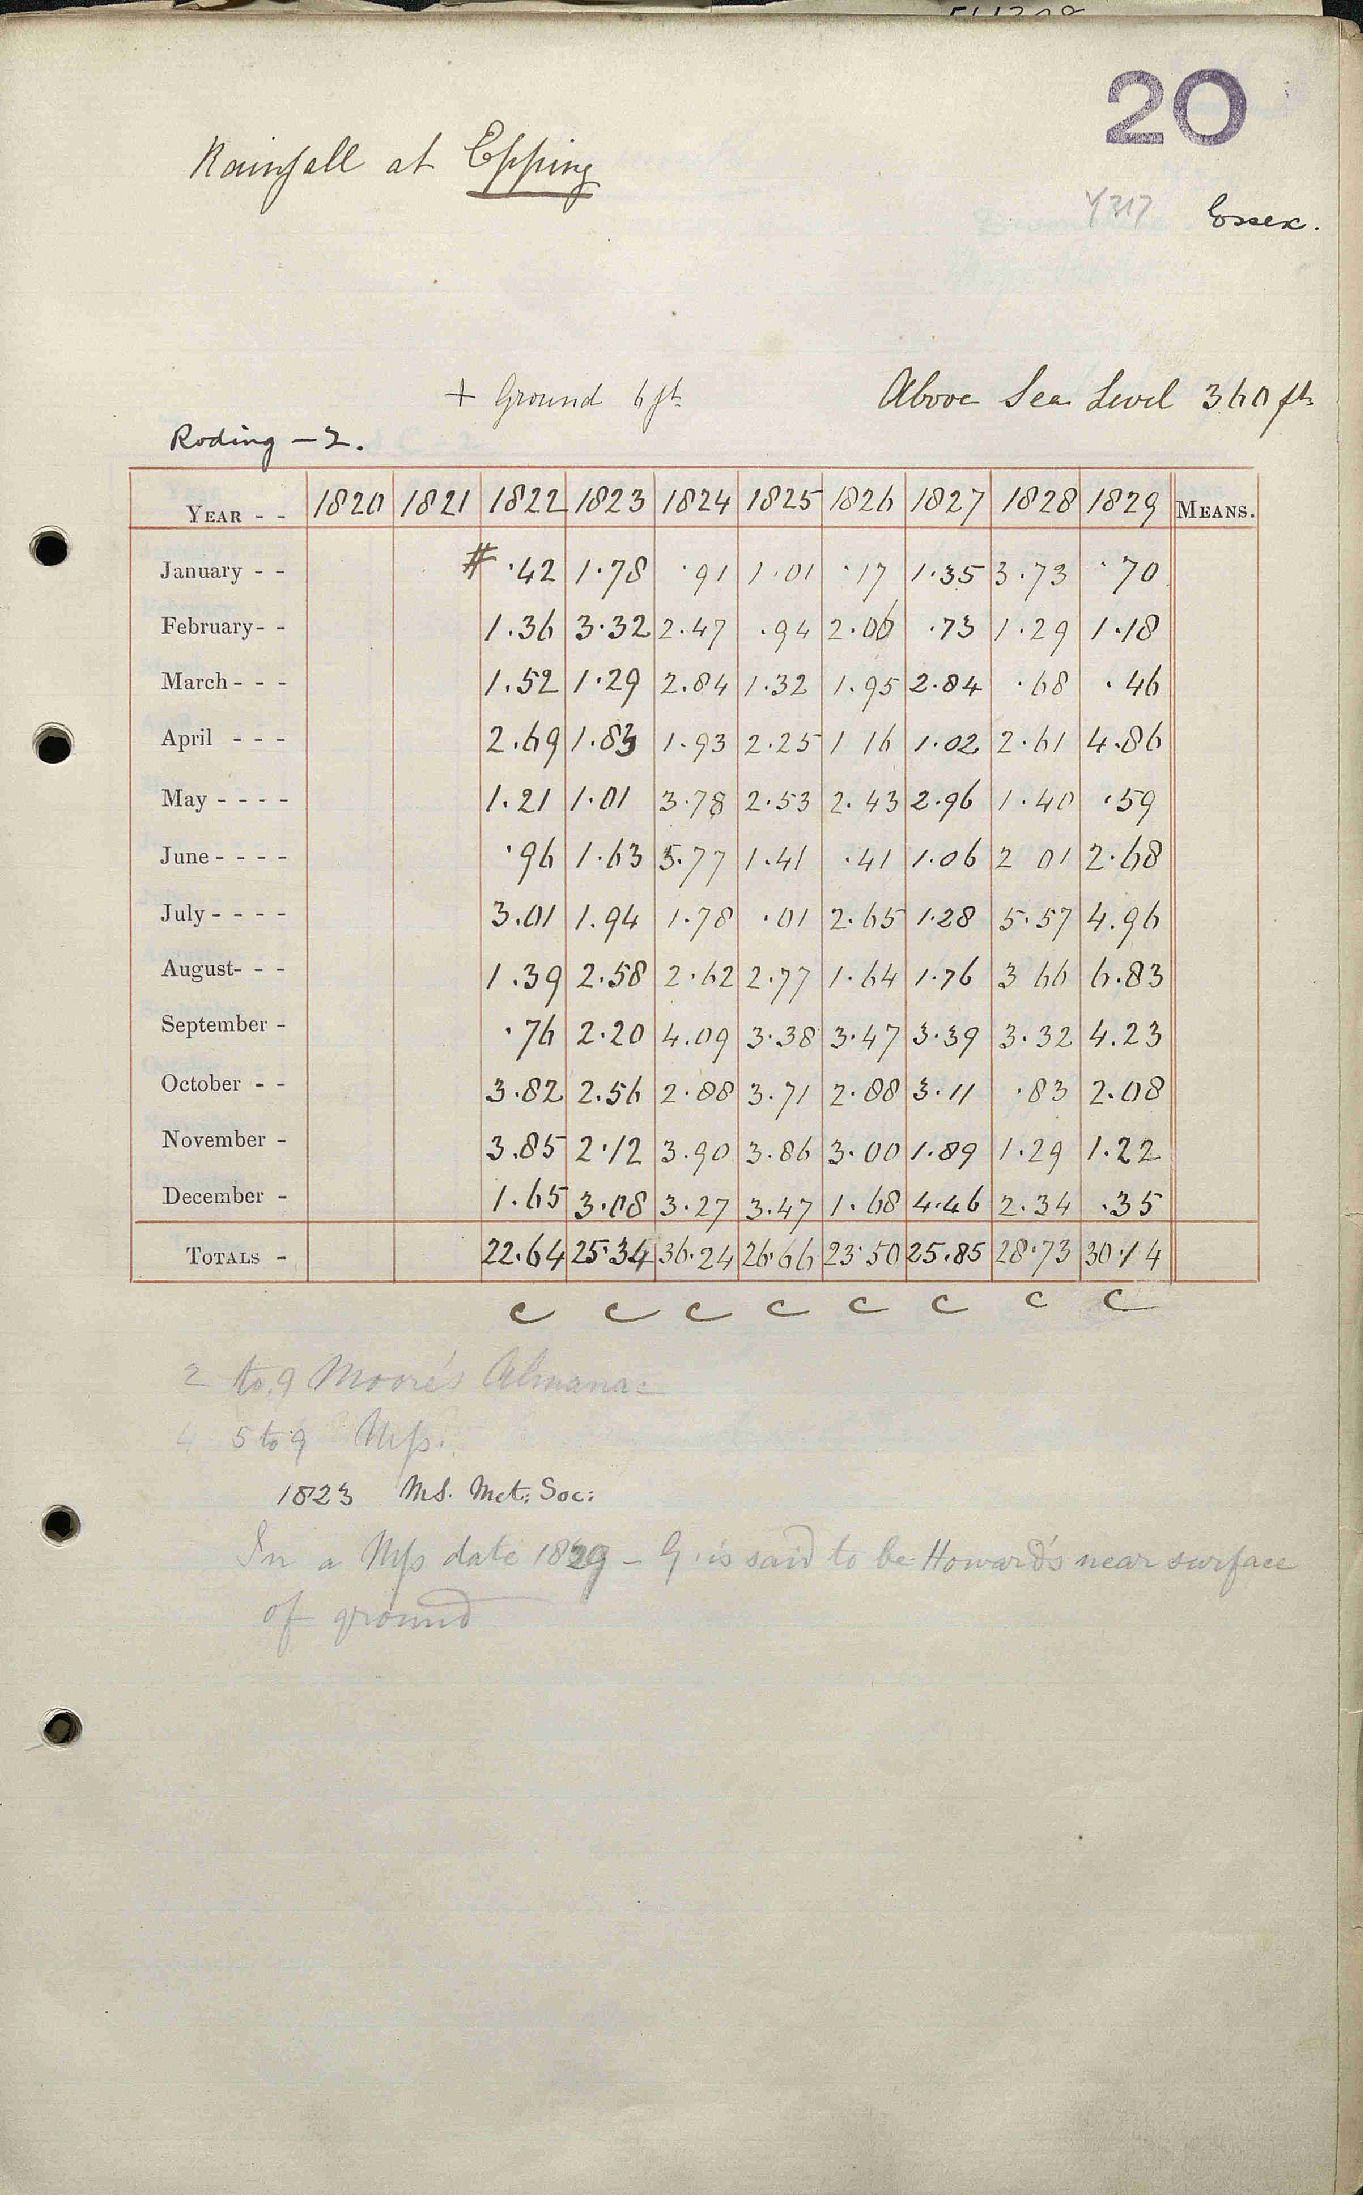 20
Rainfall at Epping
Y317 Essex.
+ Ground 6 ft. Above Sea Level 360 ft.
Roding – 2.
YEAR - - 1820 1821 1822 1823 1824 1825 1826 1827 1828 1829 MEANS.
January - - # ·42 1·78 ·91 1·01 ·17 1·35 3·73 ·70
February- - 1.36 3·32 2·47 .94 2·06 ·73 1·29 1·18
March - - - 1.52 1·29 2.84 1.32 1.95 2·84 ·68 ·46
April - - - 2.69 1.83 1.93 2.25 1 16 1.02 2·61 4·86
May - - - - 1.21 1.01 3·78 2·53 2.43 2·96 1·40 ·59
June - - - - ·96 1·63 5·77 1·41 ·41 1.06 2 01 2·68
July - - - - 3.01 1.94 1·78 ·01 2·65 1·28 5·57 4.96
August- - - 1.39 2.58 2·62 2·77 1·64 1·76 3 66 6.83
September - ·76 2·20 4.09 3·38 3·47 3·39 3·32 4.23
October - - 3.82 2.56 2·88 3.71 2·88 3·11 ·83 2.08
November - 3.85 2·12 3.90 3.86 3·00 1·89 1·29 1.22
December - 1.65 3.08 3.27 3.47 1.68 4·46 2.34 .35
TOTALS - 22.64 25·34 36·24 26·66 23·50 25.85 28·73 30·14
c c c c c c c c
2 to 9 Moore's Almanac
4 5 to 9 Mſs.
1823 MS. Met: Soc:
In a Mſs date 1829 – G. is said to be Howard's near surface
of ground